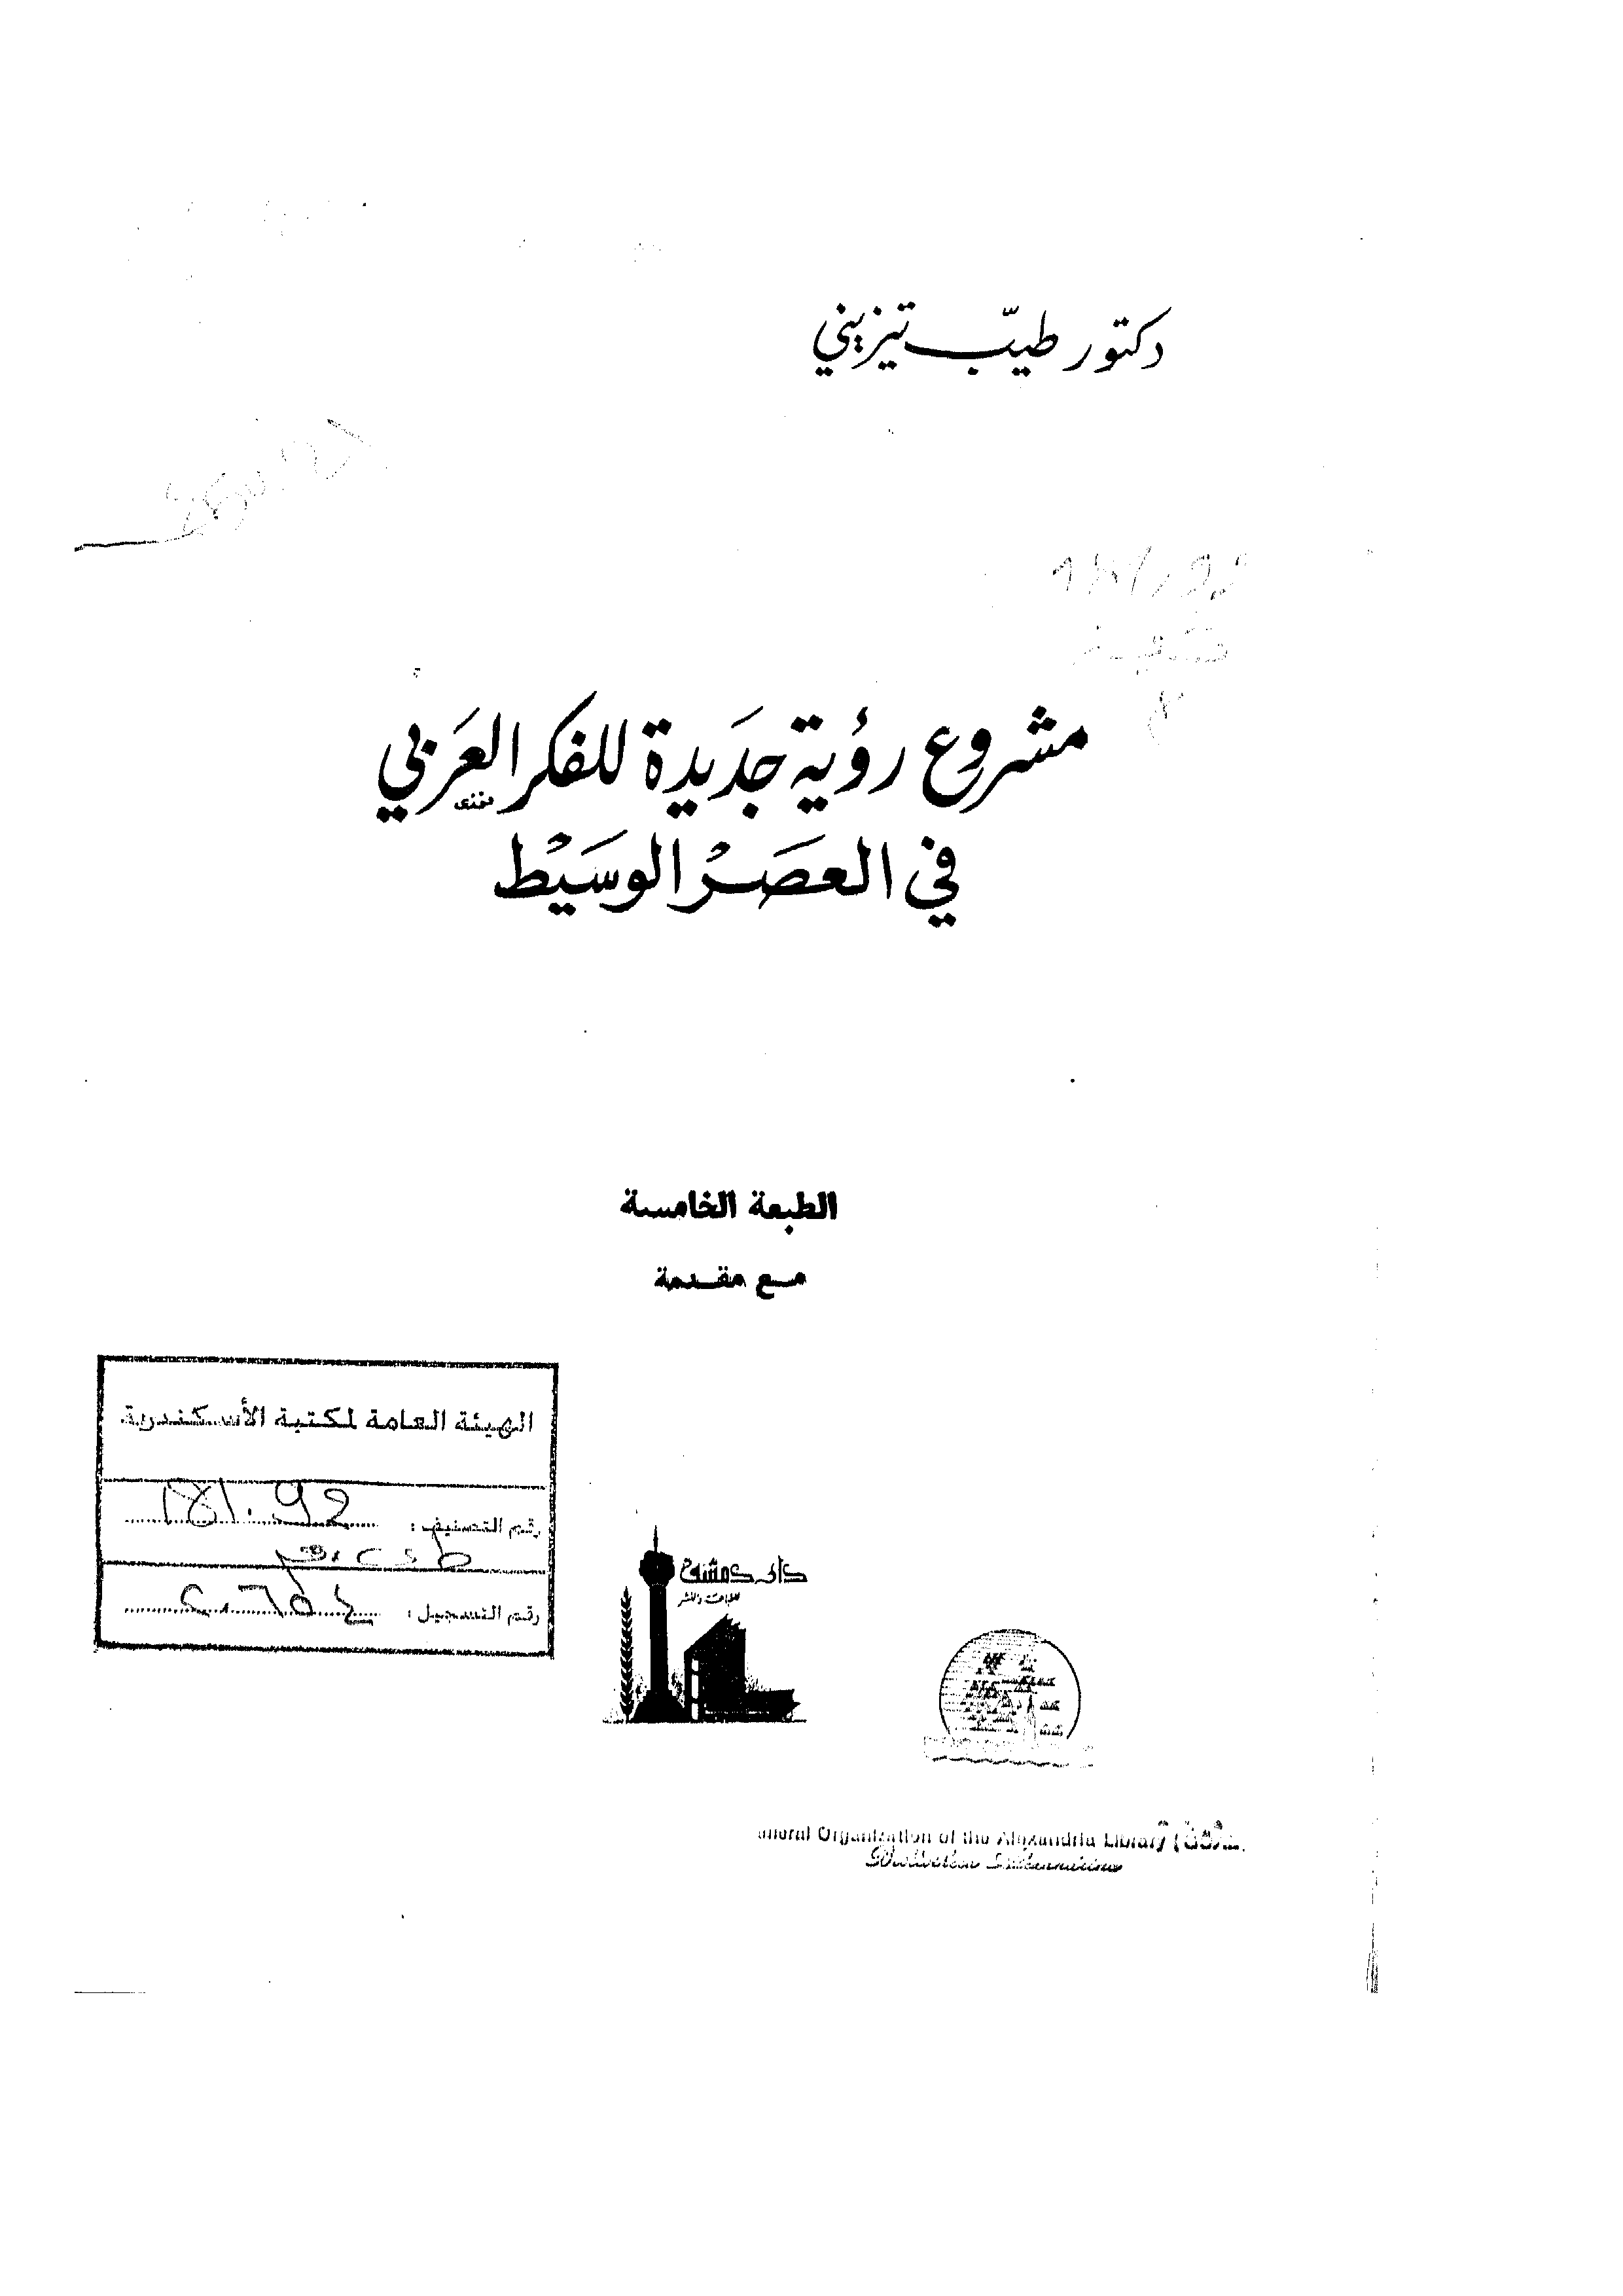 دكتور طيّب تيزيني
مشروع رؤية جَديدة للفكر العَربي
في العصَرْ الوسَيْط
الطبعة الخامسة
مع مقدمة
الهيئة العامة لمكتبة الأسكندرية
رقم التصنيف : 181.92
رقم التسجيل :
دار دمشق
للطباعة والنشر
General Organization of the Alexandria Library
Bibliotheca Alexandrina